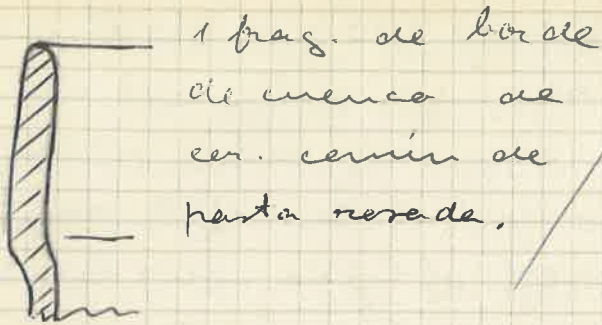 1 frag. de borde
de cuenco de
cer. común de
pasta rosada.